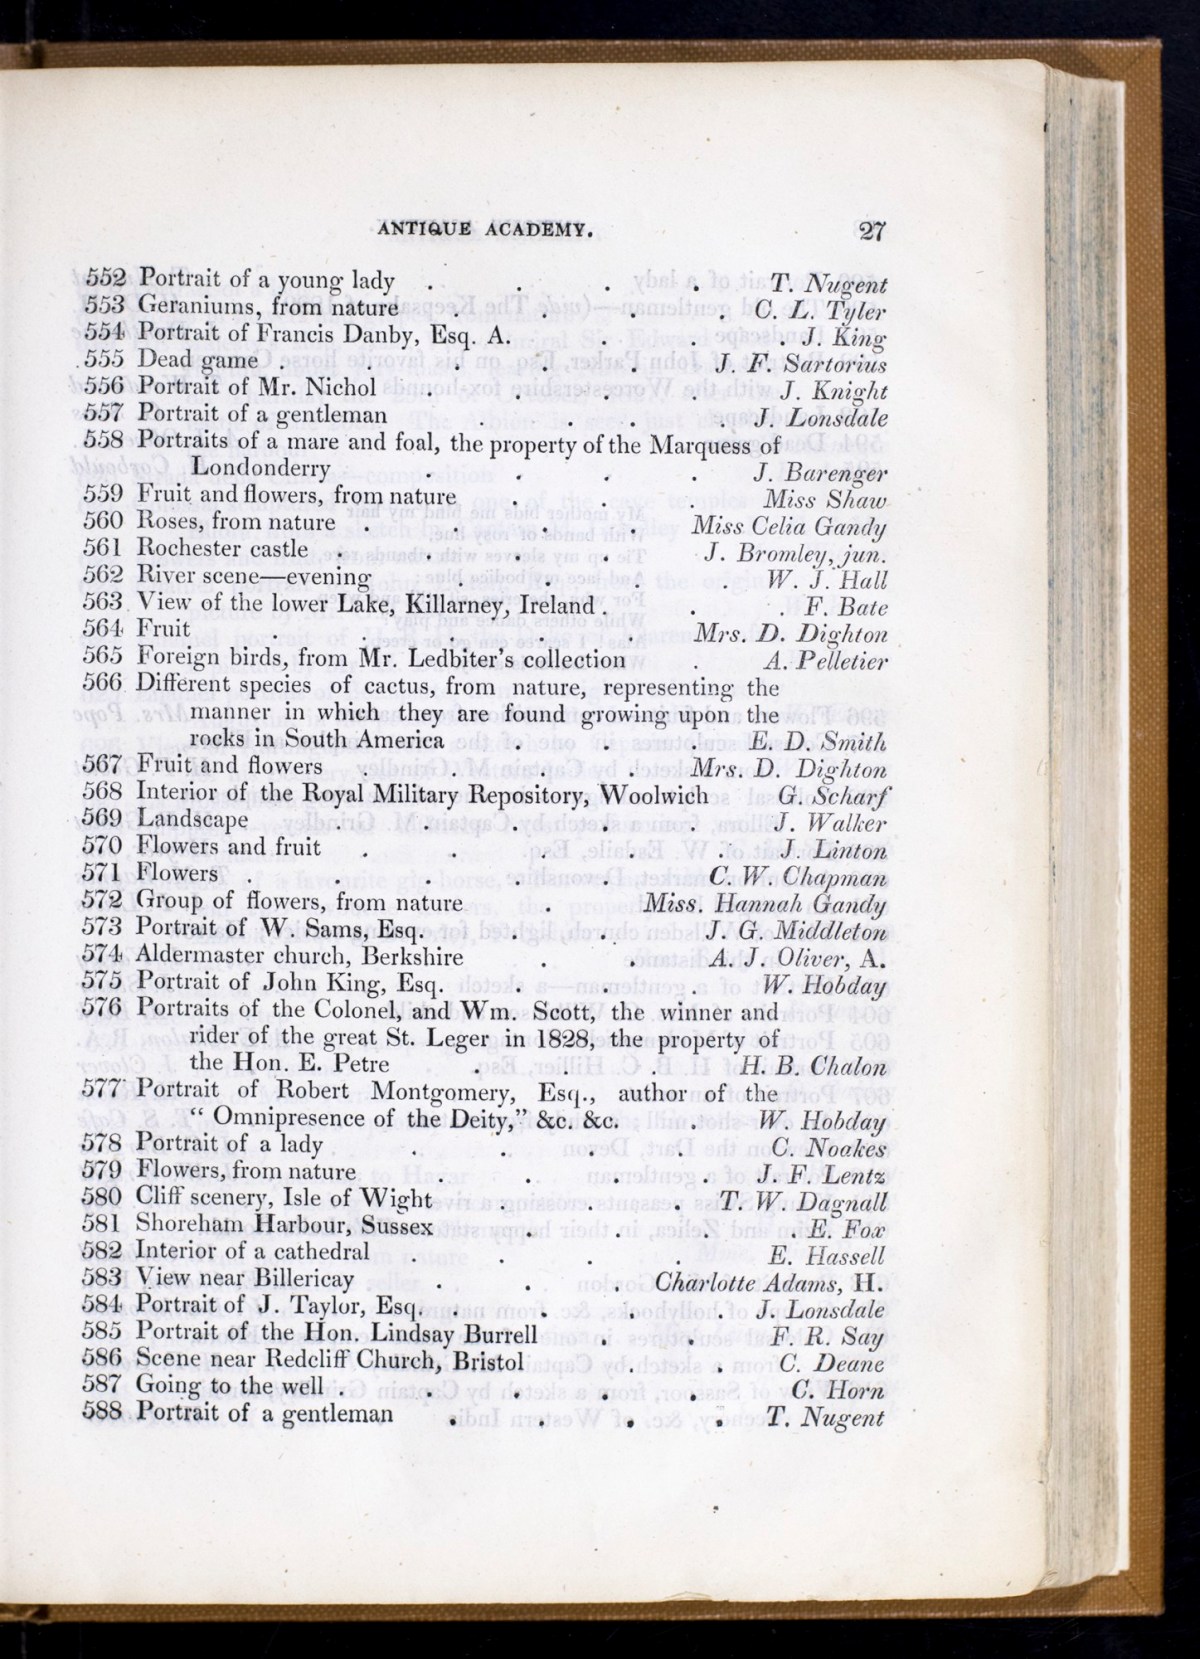 ANTIQUE ACADEMY. 27
552 Portrait of a young lady . . . . T. Nugent
553 Geraniums, from nature . . . . C. L. Tyler
554 Portrait of Francis Danby, Esq. A. . . . J. King
555 Dead game . . . . . J. F. Sartorius
556 Portrait of Mr. Nichol . . . . J. Knight
557 Portrait of a gentleman . . . . J. Lonsdale
558 Portraits of a mare and foal, the property of the Marquess of
Londonderry . . . . J. Barenger
559 Fruit and flowers, from nature . . . Miss Shaw
560 Roses, from nature . . . . Miss Celia Gandy
561 Rochester castle . . . . . J. Bromley, jun.
562 River scene—evening . . . . W. J. Hall
563 View of the lower Lake, Killarney, Ireland . . . F. Bate
564 Fruit . . . . . Mrs. D. Dighton
565 Foreign birds, from Mr. Ledbiter's collection . A. Pelletier
566 Different species of cactus, from nature, representing the
manner in which they are found growing upon the
rocks in South America . . . E. D. Smith
567 Fruit and flowers . . . . Mrs. D. Dighton
568 Interior of the Royal Military Repository, Woolwich G. Scharf
569 Landscape . . . . . J. Walker
570 Flowers and fruit . . . . . J. Linton
571 Flowers . . . . . C. W. Chapman
572 Group of flowers, from nature . Miss. Hannah Gandy
573 Portrait of W. Sams, Esq. . . . J. G. Middleton
574 Aldermaster church, Berkshire . . A. J. Oliver, A.
575 Portrait of John King, Esq. . . . W. Hobday
576 Portraits of the Colonel, and Wm. Scott, the winner and
rider of the great St. Leger in 1828, the property of
the Hon. E. Petre . . . H. B. Chalon
577 Portrait of Robert Montgomery, Esq., author of the
“ Omnipresence of the Deity,” &c. &c. . W. Hobday
578 Portrait of a lady . . . . C. Noakes
579 Flowers, from nature . . . . J. F. Lentz
580 Cliff scenery, Isle of Wight . . . T. W. Dagnall
581 Shoreham Harbour, Sussex . . . . E. Fox
582 Interior of a cathedral . . . . E. Hassell
583 View near Billericay . . . Charlotte Adams, H.
584 Portrait of J. Taylor, Esq. . . . . J. Lonsdale
585 Portrait of the Hon. Lindsay Burrell . . F. R. Say
586 Scene near Redcliff Church, Bristol . . . C. Deane
587 Going to the well . . . . . C. Horn
588 Portrait of a gentleman . . . . T. Nugent